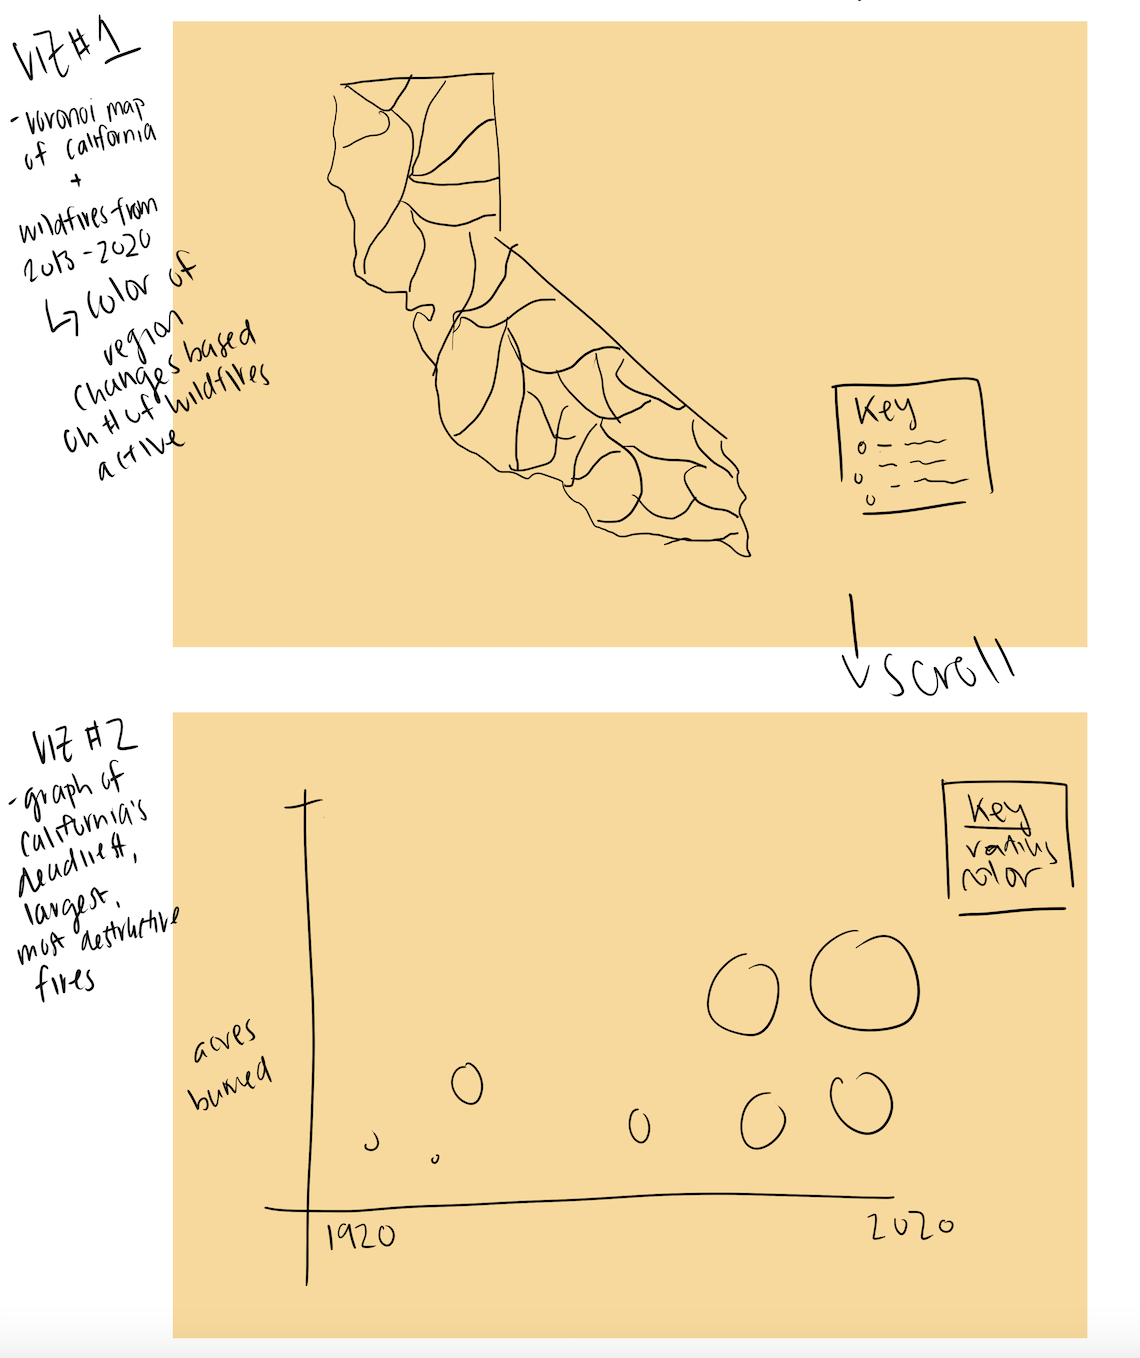 VIZ #1
- Voronoi map
of California
+
wildfires from
2013-2020
↳ color of
region
changes based
on # of wildfires
active
Key
scroll
VIZ #2
- graph of
California's
deadliest,
largest,
most destructive
fires
Key
radius
color
acres
burned
1920
2020